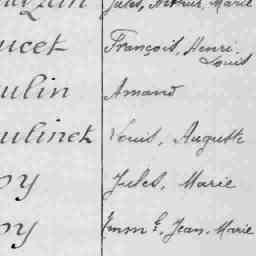 Jules, Arthur, Marie
ucet François, Henri
Louis
ulin Amand
ulinet Louis, Auguste
py Jules, Marie
py Emm.l, Jean-Marie